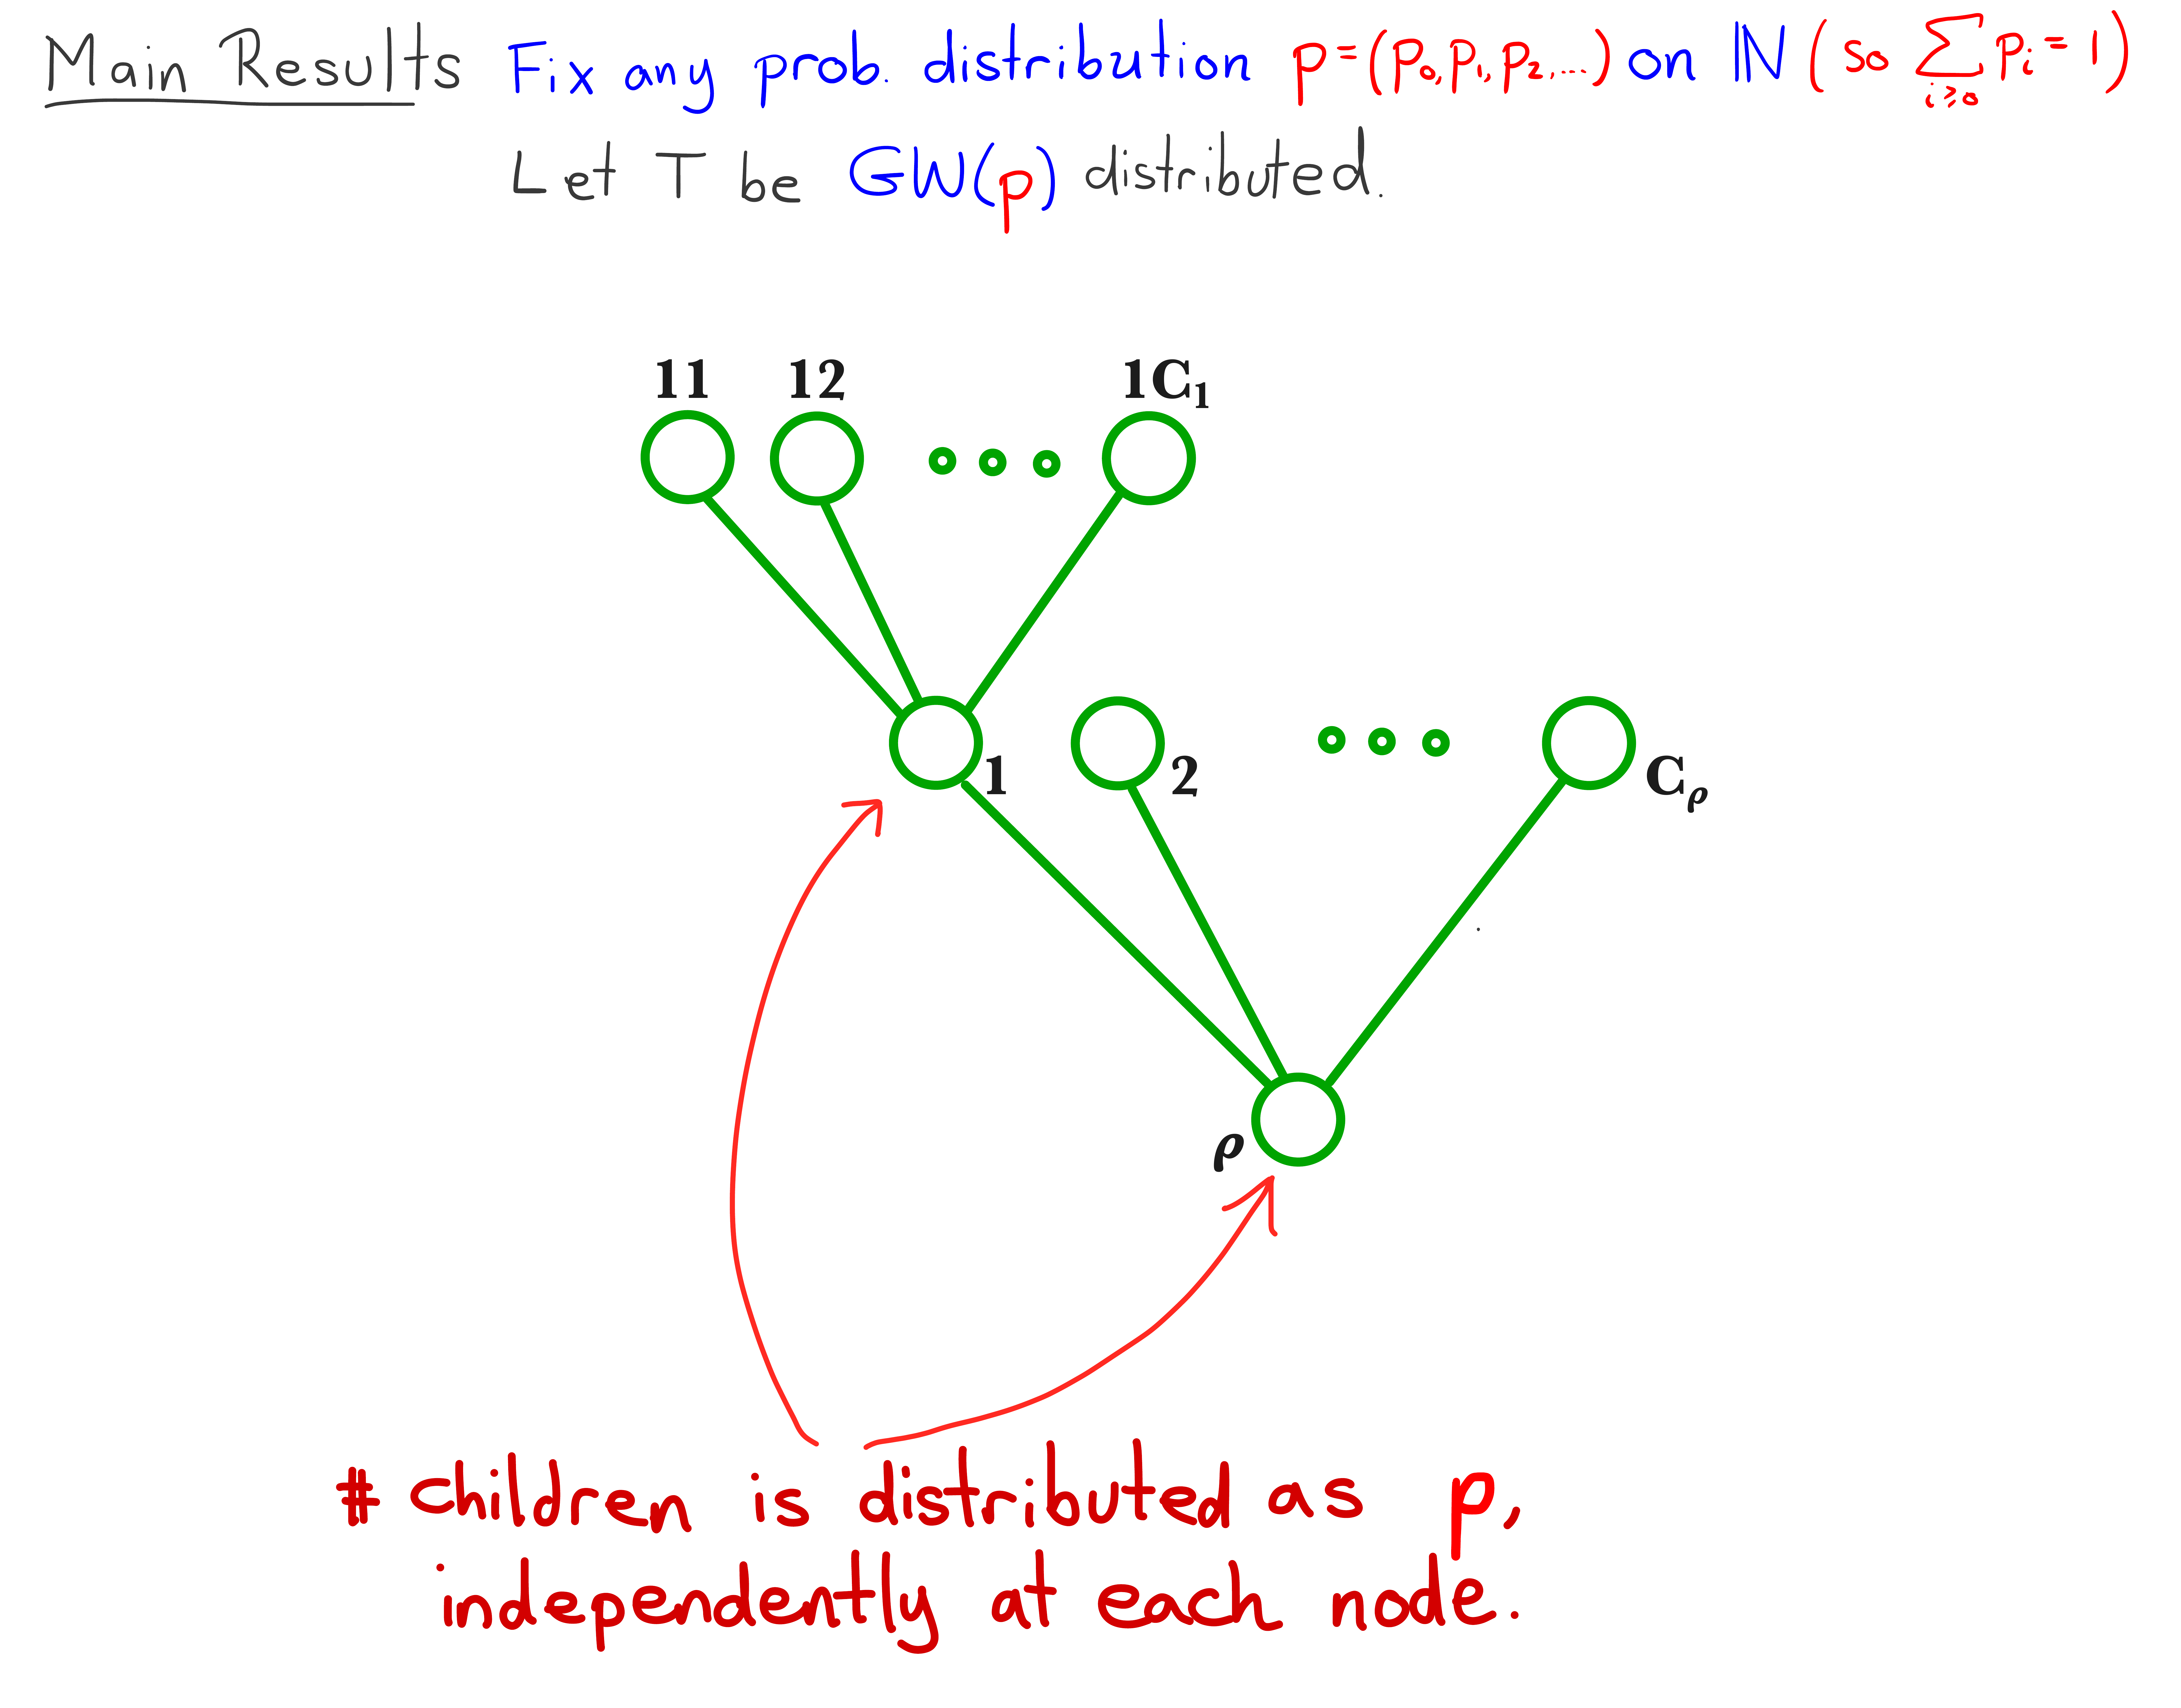 Main Results Fix any prob. distribution p=(p₀,p₁,p₂,...) on ℕ (so ∑_{i≥0} pᵢ = 1)
Let T be GW(p) distributed.
11 12 1C₁
1 2 C_ρ
ρ
# children is distributed as p,
independently at each node.